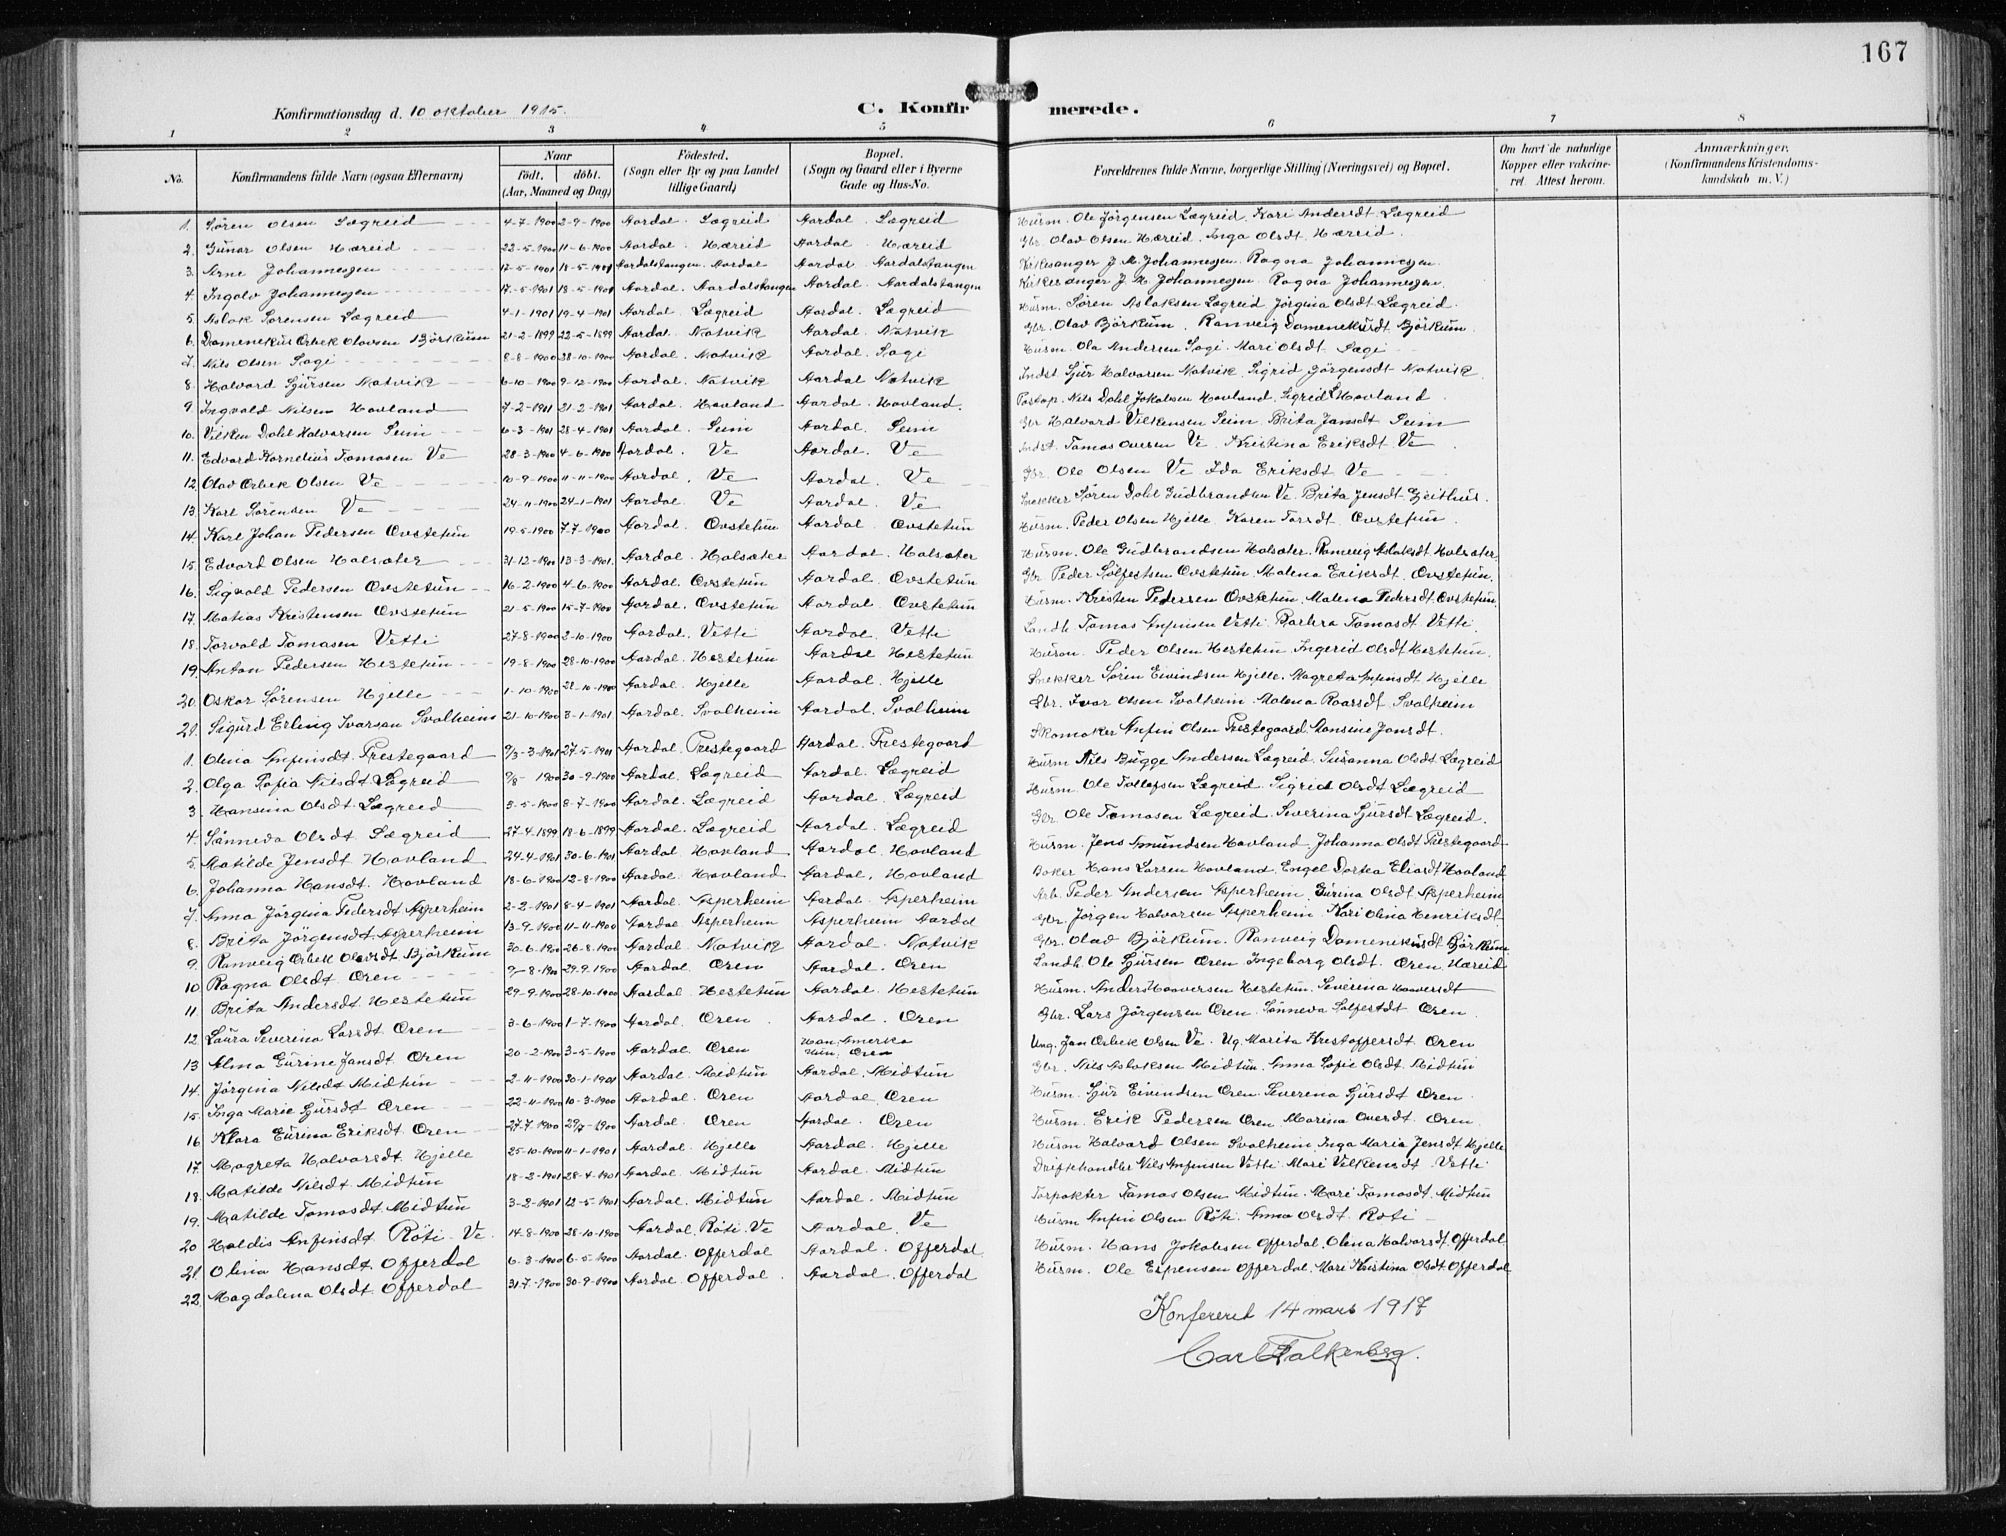 167
Konfirmationsdag d. 10 oktober 1915.
C. Konfirmerede.
1 2 3 4 5 6 7 8
No. Konfirmandens fulde Navn (ogsaa Efternavn) Naar født. døbt. (Aar, Maaned og Dag) Fødested. (Sogn eller By og paa Landet tillige Gaard) Bopæl. (Sogn og Gaard eller i Byerne Gade og Hus-No. Forældrenes fulde Navne, borgerlige Stilling (Næringsvei) og Bopæl. Om havt de naturlige Kopper eller vakcineret. Attest herom. Anmærkninger. (Konfirmandens Kristendomskundskab m. V.)
1. Søren Olsen Lægreid 4-7-1900 2-9-1900 Aardal. Lægreid Aardal. Lægreid Husm. Ole Jörgensen Lægreid. Kari Andersdt. Lægreid
2. Gunar Olsen Hæreid 22-5-1900 11-6-1900 Aardal. Hæreid Aardal. Hæreid Gbr. Olav Olsen Hæreid. Inga Olsdt. Hæreid.
3. Arne Johannessen 17-5-1901 18-5-1901 Aardalstangen. Aardal Aardal. Aardalstangen Kirkesanger J. M. Johannessen. Ragna Johannessen.
4. Ingolv Johannessen 17-5-1901 18-5-1901 Aardal. Aardalstangen Aardal. Aardalstangen Kirkesanger J. M. Johannessen. Ragna Johannessen.
5. Aslak Sørensen Lægreid 4-1-1901 19-4-1901 Aardal. Lægreid Aardal. Lægreid Husm. Søren Aslaksen Lægreid. Jörgina Olsdt. Lægreid.
6. Damenekus Orbek Olavsen Björkum 21-2-1899 22-5-1899 Aardal. Natvik Aardal. Natvik Gbr. Olav Björkum. Ranveig Damenekusdt Björkum.
7. Nils Olsen Sagi 8-8-1900 28-10-1900 Aardal. Natvik Aardal. Sagi Husm. Ola Andersen Sagi. Mari Olsdt. Sagi
8. Halvard Sjursen Natvik 6-10-1900 9-12-1900 Aardal. Natvik Aardal Natvik Indst. Sjur Halvorsen Natvik. Sigrid Jörgensdt Natvik.
9. Ingvald Nilsen Hovland 7-2-1901 21-2-1901 Aardal. Hovland Aardal. Hovland. Postop. Nils Dahl Jakobsen Hovland. Sigrid Hovland.
10. Vilken Dahl Halvorsen Seim 6-3-1901 28-4-1901 Aardal. Seim Aardal. Seim Gbr Halvard Vilkensen Seim. Brita Jansdt Seim
11. Edvard Kornelius Tomasen Ve 28-3-1900 4-6-1900 Aardal. Ve Aardal. Ve Indst. Tomas Oversen Ve. Kristina Eriksdt. Ve
12. Olav Orbek Olsen Ve 10-9-1900 11-11-1900 Aardal. Ve Aardal. Ve Gbr. Ole Olsen Ve Ida Eriksdt Ve
13. Karl Sørensen Ve 24-11-1900 24-1-1901 Aardal. Ve Aardal. Ve Snekker Søren Dahl Gudbrandsen Ve. Brita Jensdt Geithus.
14. Karl Johan Pedersen Øvstetun 19-5-1900 7-7-1900 Aardal. Øvstetun Aardal. Øvstetun Husm. Peder Olsen Hjelle. Karen Torsdt. Øvstetun.
15. Edvard Olsen Holsæter 31-12-1900 13-3-1901. Aardal. Holsæter Aardal. Holsæter Husm. Ole Gudbrandsen Holsæter. Ranveig Aslaksdt. Holsæter
16. Sigvald Pedersen Øvstetun 16-2-1900 4-6-1900 Aardal. Øvstetun Aardal. Øvstetun Gbr Peder Solfestsen Øvstetun. Malena Eriksdt. Øvstetun.
17. Matias Kristensen Øvstetun 21-5-1900 15-7-1900 Aardal. Øvstetun Aardal. Øvstetun Husm. Kristen Pedersen Øvstetun. Malena Pedersdt Øvstetun.
18. Torvald Tomasen Vetti 27-8-1900 2-10-1900 Aardal. Vetti Aardal. Vetti Landh. Tomas Anfinsen Vetti. Barbra Tomasdt. Vetti
19. Anton Pedersen Hestetun 19-8-1900 28-10-1900 Aardal. Hestetun Aardal Hestetun Husm. Peder Olsen Hestetun. Ingerid Olsdt Hestetun.
20. Oskar Sørensen Hjelle 1-10-1900 28-10-1900 Aardal. Hjelle Aardal. Hjelle Snekker Søren Eivindsen Hjelle. Magreta Anfinsdt Hjelle
21. Sigurd Erling Ivarsen Svalheim 21-10-1900 3-1-1901. Aardal. Svalheim Aardal. Svalheim Gbr. Ivar Olsen Svalheim. Malena Roarsdt. Svalheim
1. Olina Anfinsdt. Prestegaard 9/3-3-1901 27-5-1901 Aardal. Prestegaard Aardal. Prestegaard Skomaker Anfin Olsen Prestegaard. Hansine Jonsdt.
2. Olga Sofia Nilsdt Lægreid 9/8-1900 30-9-1900 Aardal. Lægreid Aardal. Lægreid Husm Nils Bugge Andersen Lægreid. Susanna Olsdt Lægreid
3. Hansina Olsdt. Lægreid 3-5-1900 8-7-1900 Aardal. Lægreid Aardal. Lægreid Husm. Ole Tollefsen Lægreid. Sigrid Olsdt Lægreid
4. Sønneva Olsdt Lægreid 27-4-1899 18-6-1899 Aardal. Lægreid Aardal. Lægreid Gbr. Ole Tomasen Lægreid. Severina Sjursdt Lægreid.
5. Matilde Jensdt Hovland 24-4-1901 30-6-1901 Aardal. Hovland Aardal. Hovland Husm. Jens Amundsen Hovland Johanna Olsdt Prestegaard
6. Johanna Hansdt. Hovland 18-6-1900 12-8-1900 Aardal. Hovland Aardal. Hovland Baker Hans Larsen Hovland. Engel Dortea Eliasdt Hovland
7. Anna Jörgina Pedersdt Asperheim 2-2-1901 8-4-1901 Aardal. Asperheim Aardal. Asperheim Arb. Peder Andersen Asperheim Gurina Olsdt Asperheim
8. Brita Jörgensdt. Asperheim 13-9-1900 11-11-1900 Aardal Asperheim Asperheim Aardal Gbr. Jörgen Halvorsen Asperheim Kari Olina Henriksdt.
9. Ranveig Orbek Olavsdt Björkum 30-6-1900 26-8-1900 Aardal. Natvik Aardal. Natvik Gbr. Olav Björkum. Ranveig Damenekusdt Björkum
10. Ragna Olsdt. Øren 9-8-1900 29-9-1900 Aardal. Øren Aardal. Øren Landh. Ole Sjursen Øren Ingeborg Olsdt. Øren. Hæreid
11. Brita Andersdt Hestetun 29-9-1900 28-10-1900 Aardal. Hestetun Aardal. Hestetun Husm. Anders Haaversen Hestetun. Severina Haaversdt
12. Laura Severina Larsdt Øren 3-6-1900 1-7-1900 Aardal. Øren Aardal. Øren Gbr. Lars Jörgensen Øren. Sønneva Solfestdt Øren.
13 Alma Gurine Jansdt. Øren 20-2-1900 3-5-1900 Aardal. Øren Han. Amerika Hun. Øren Ung. Jan Orbek Olsen Ve. Ug. Marita Kristoffersdt. Øren
14. Jörgina Nilsdt Midtun 2-11-1900 30-1-1901 Aardal. Midtun Aardal. Midtun Gbr. Nils Aslaksen Midtun. Anna Sofie Olsdt. Midtun
15. Inga Marie Sjursdt Øren 22-11-1900 10-3-1900 Aardal. Øren Aardal Øren Husm. Sjur Eivindsen Øren. Severina Sjursdt Øren.
16 Klara Gurina Eriksdt. Øren 27-7 1900 29/7-1900 Aardal. Øren Aardal. Øren Husm. Erik Pedersen Øren. Marina Oversdt. Øren.
17. Magreta Halvorsdt. Hjelle 25-10-1900 11-1-1901 Aardal. Hjelle Aardal. Hjelle Husm Halvard Olsen Svalheim Inga Maria Jensdt Hjelle
18. Matilde Nilsdt. Midtun 18-2-1901 28-4-1901 Aardal. Midtun Aardal. Midtun Driftehandler Nils Anfinsen Vetti. Mari Vilkensdt. Vetti
19. Matilde Tomasdt. Midtun 3-2-1901 12-5-1901 Aardal. Midtun Aardal. Midtun Forpakter Tomas Olsen Midtun. Mari Tomasdt. Midtun
20 Haldis Anfinsdt. Röti. Ve. 14-8-1900 28-10-1900 Aardal. Röti. Ve Aardal. Ve Husm Anfin Olsen Röti. Anna Olsdt. Röti
21. Olina Hansdt. Offerdal 6-3-1900 6-5-1900 Aardal. Offerdal Aardal. Offerdal Husm. Hans Jakobsen Offerdal. Olina Halvorsdt. Offerdal
22. Magdalena Olsdt. Offerdal 31.7-1900 30-9-1900 Aardal. Offerdal Aardal. Offerdal Husm. Ole Espensen Offerdal. Mari Kristina Olsdt. Offerdal
Konfereret 14 mars 1917
Carl Falkenberg.